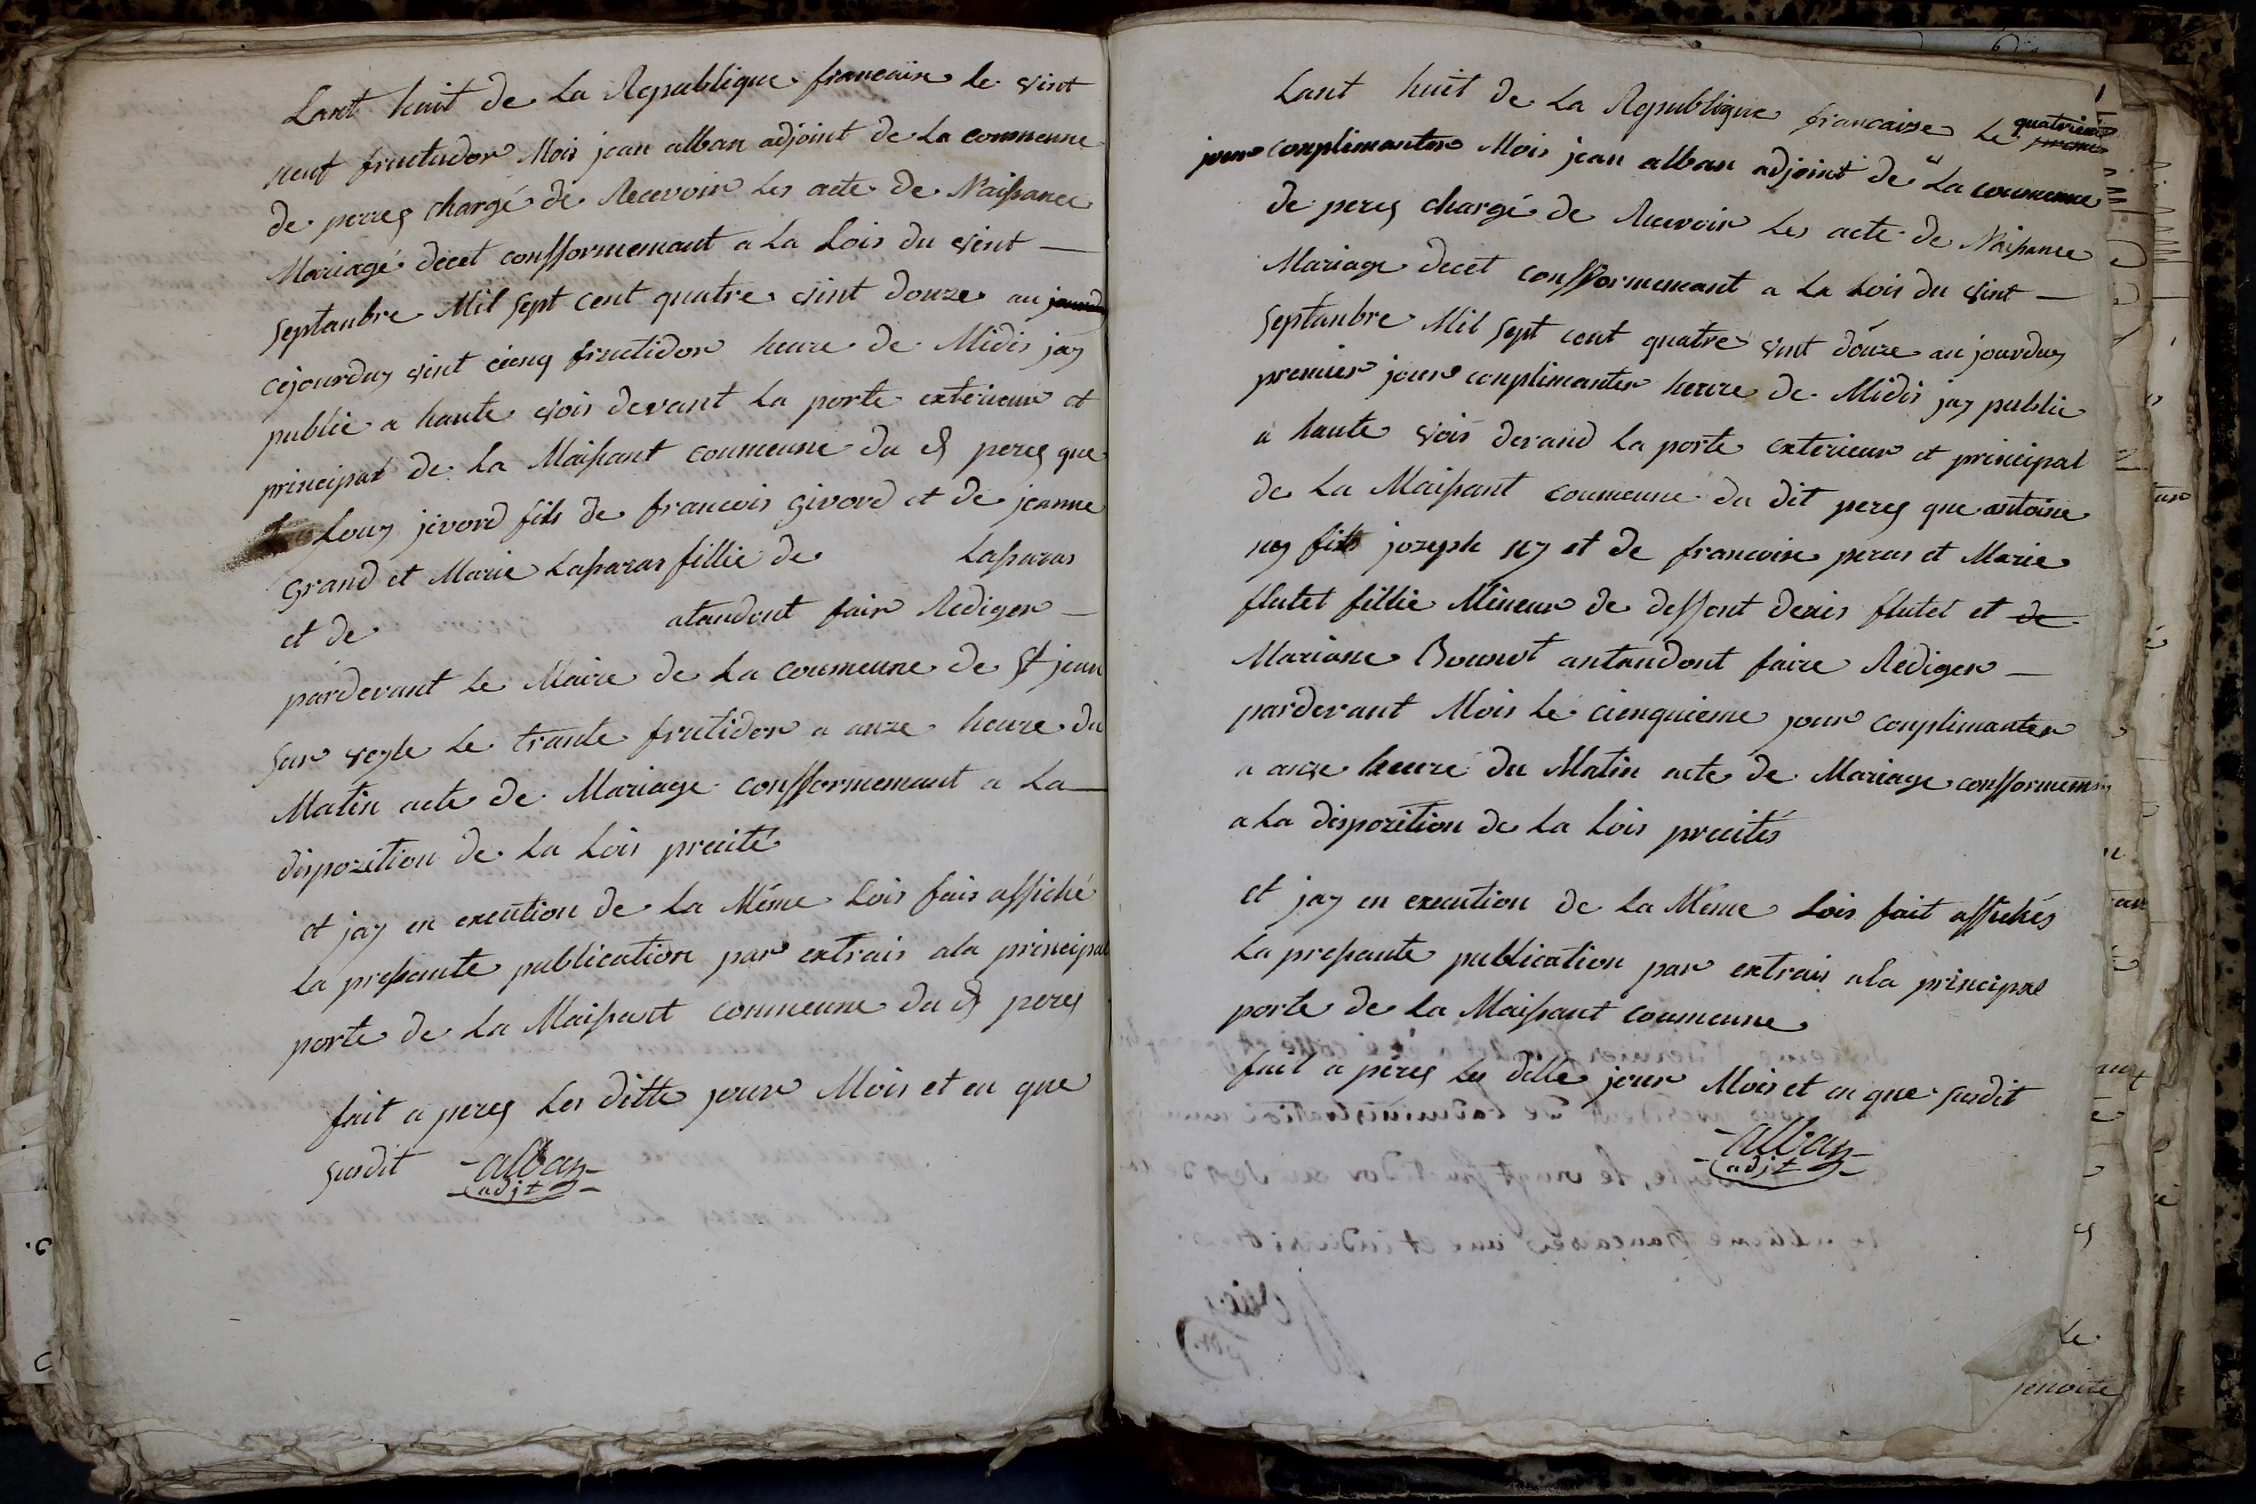 Lant huit de La Republique francaise le vint
neuf fructudor Mois jean alban adjoint de La commeune
de perres chargé de Recevoir Les acte de Naissance
Mariagé décet confformemant a La Lois du vint —
septanbre Mil sept cent quatre vint douze au
cejourduy vint cienq fructidor heure de Midis jay
publie a haute vois devant La porte exterieur et
principal de La Maissant coumeune du dt peres que
Louy jivord fils de francois Givord et de jeanne
Grand et Marie Laparas fillie de Laparas
et de atandont fair Rediger —
pardevant Le Maire de La coumeune de St jean
sur veyle Le trante frutidor a onze heure du
Matin acte de Mariage confformemant a La —
dispozition de La Lois precité
et jay en execution de La Même Lois fais affiché
La pressante publication par extrais ala principal
porte de La Maissant coumeune du dt peres
fait a peres Les ditte jour Mois et en que
susdit alban
adjt
Lant huit de La Republique francaise Le quatrieme
jour conplimanter Mois jean alban adjoint de La coumeune
de peres chargé de Recevoir Les acte de Naissance
Mariage decet confformemant a La Lois du vint —
septanbre Mil sept cent quatre vint douze au jourduy
premier jour conplimanter heure de Midis jay public
a haute vois devand La porte exterieur et principal
de La Maissant coumeune du dit peres que antoine
ney fils jozeph ney et de francoise peras et Marie
flutet fillie Mineur de deffont denis flutet et de
Mariane Bounot antandont faire Rediger —
pardevant Mois Le cienquieme jour conplimanter
a onze heure du Matin acte de Mariage confformem
a La dispozition de La Lois precités
et jay en execution de La Même Lois fait affichés
La pressante publication par extrais ala principal
porte de La Maissant coumeune
fait a peres Les ditte jour Mois et en que susdit
alban
adjt